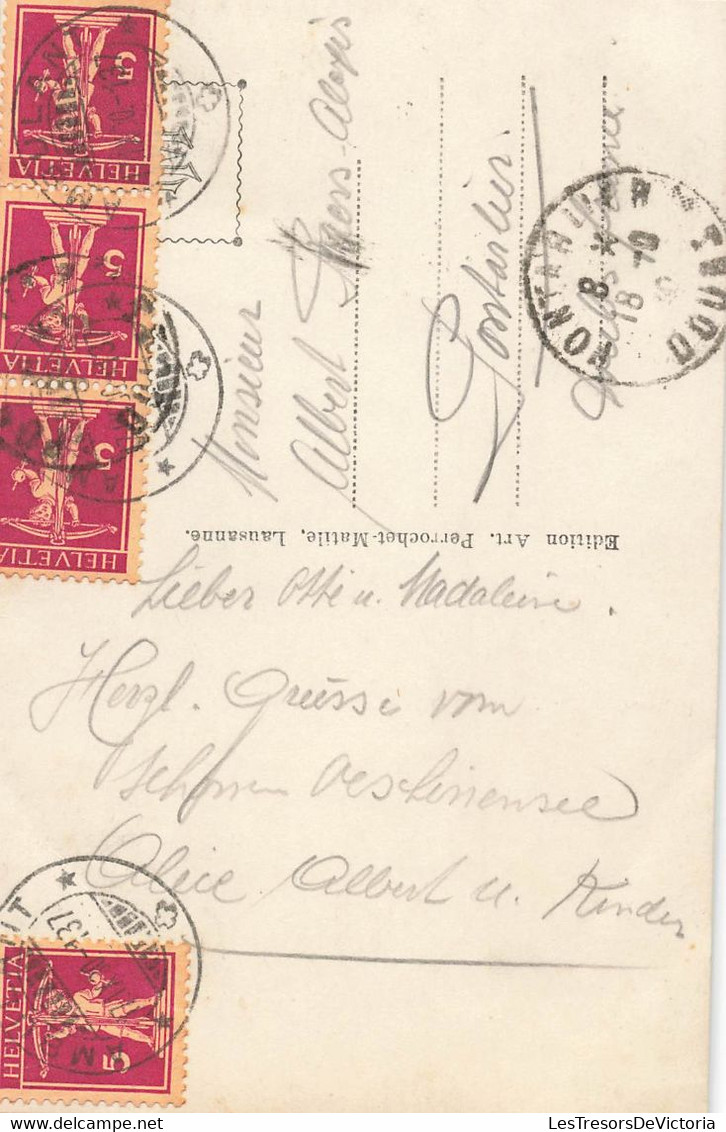 HELVETIA
5
HELVETIA
5
HELVETIA
5
Monsieur
Albert
Pontarlier
DOUBS
18 8
Edition Art. Perrochet-Matile, Lausanne.
Lieber Otti u. Madaleine.
Herzl. Grüsse vom
schönen Oeschinensee
Alice Albert u. Kinder
HELVETIA
5
LesTresorsDeVictoria
delcampe.net